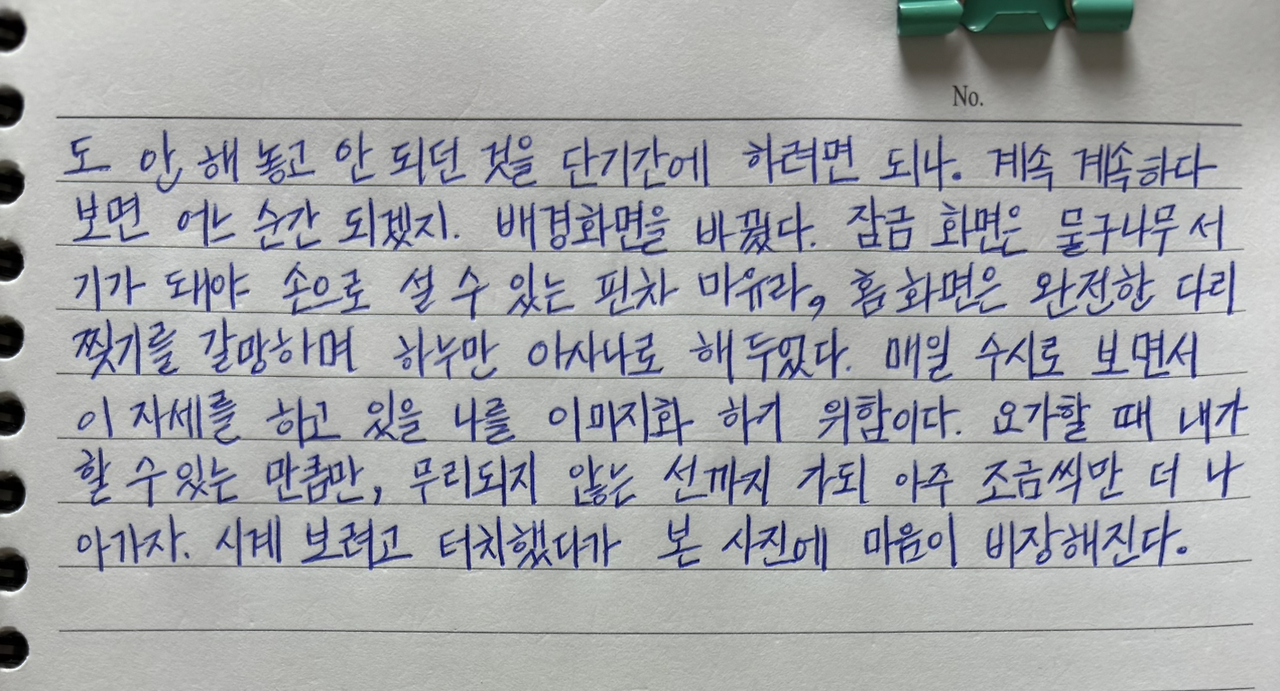 No.
도 안 해 놓고 안 되던 것을 단기간에 하려면 되나. 계속 계속하다
보면 어느 순간 되겠지. 배경화면을 바꿨다. 잠금 화면은 물구나무 서
기가 돼야 손으로 설 수 있는 핀차 마유라, 홈 화면은 완전한 다리
찢기를 갈망하며 하누만 아사나로 해 두었다. 매일 수시로 보면서
이 자세를 하고 있을 나를 이미지화 하기 위함이다. 요가할 때 내가
할 수 있는 만큼만, 무리되지 않는 선까지 가되 아주 조금씩만 더 나
아가자. 시계 보려고 터치했다가 본 사진에 마음이 비장해진다.